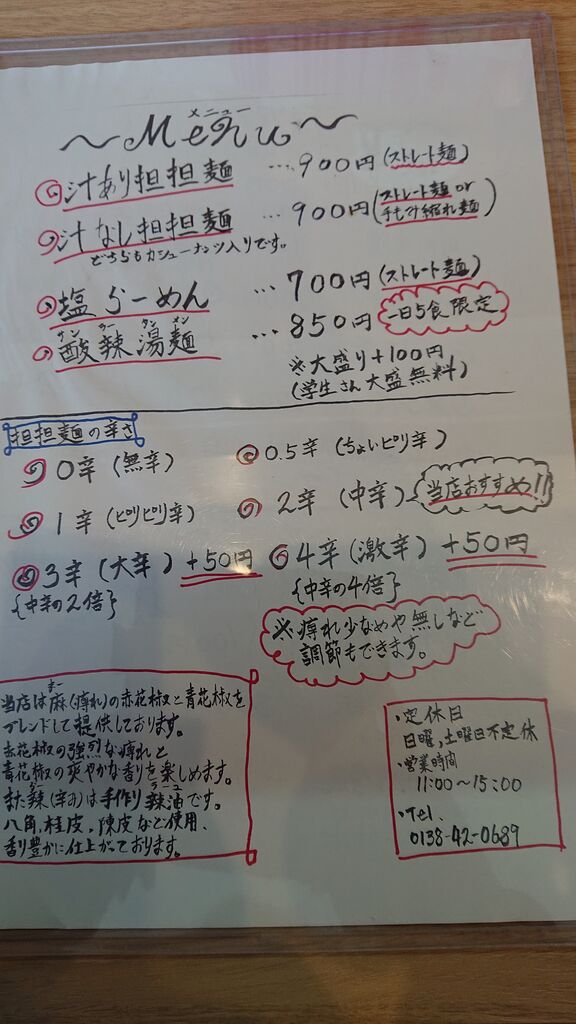 メニュー
～Menu～
汁あり担担麺 …900円(ストレート麺)
汁なし担担麺 …900円(ストレート麺 or 手もみ縮れ麺)
どちらもカシューナッツ入りです。
塩らーめん …700円(ストレート麺)
サンラータンメン
酸辣湯麺 …850円 一日5食限定
※大盛り+100円
(学生さん大盛無料)
担担麺の辛さ
0辛(無辛) 0.5辛(ちょいピリ辛)
1辛(ピリピリ辛) 2辛(中辛) 当店おすすめ!!
3辛(大辛)+50円 4辛(激辛)+50円
{中辛の2倍} {中辛の4倍}
※痺れ少なめや無しなど
調節もできます。
マー
当店は麻(痺れ)の赤花椒と青花椒を
ブレンドして提供しております。
赤花椒の強烈な痺れと
青花椒の爽やかな香りを楽しめます。
ラー ラーユ
また辣(辛み)は手作り辣油です。
八角、桂皮、陳皮など使用、
香り豊かに仕上がっております。
・定休日
日曜,土曜日不定休
・営業時間
11:00～15:00
・Tel.
0138-42-0689